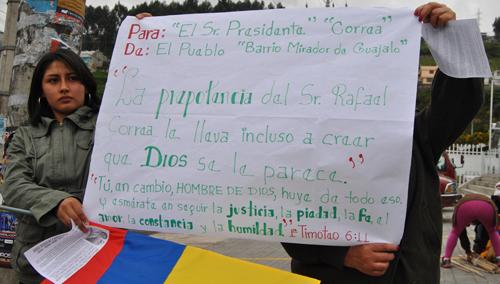 Para: "El Sr. Presidenta" "Correa"
Da: El Pueblo "Barrio Mirador de Guajalo"
"La prepotancia dal Sr. Rafaal
Corraa la llava incluso a craar
que Dios sa la paraca."
"Tú, an cambio, HOMBRE DE DIOS, huya da todo aso,
y asmárata an saguir la justicia, la piadad, la fa, al
amor, la constancia y la humildad." 1ª Timotao 6:11